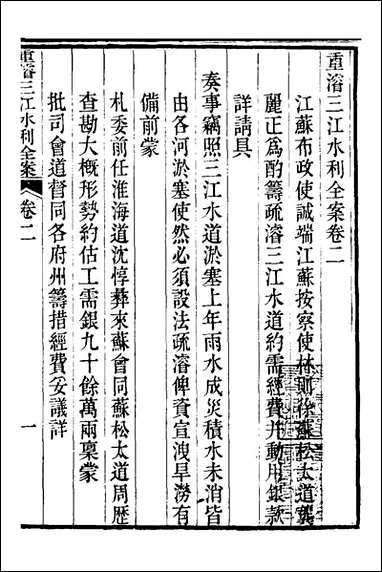 重濬三江水利全案卷二
江蘇布政使誠端江蘇按察使林則徐蘇松太道龔
麗正為酌籌疏濬三江水道約需經費并動用銀款
詳請具
奏事竊照三江水道淤塞上年雨水成災積水未消皆
由各河淤塞使然必須設法疏濬俾資宣洩旱澇有
備前蒙
札委前任淮海道沈惇彝來蘇會同蘇松太道周歷
查勘大概形勢約估工需銀九十餘萬兩稟蒙
批司會道督同各府州籌措經費妥議詳
重濬三江水利全案
卷二
一